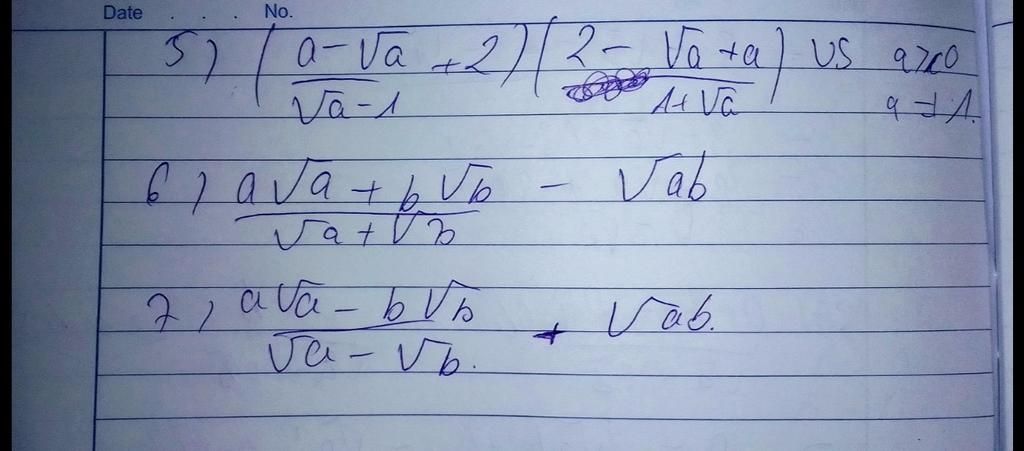 Date . . . No.
5) ( (a - √a)/(√a - 1) + 2 ) ( 2 - (√a + a)/(1 + √a) ) VS a>0
a ≠ 1.
6) (a√a + b√b)/(√a + √b) - √ab
7) (a√a - b√b)/(√a - √b). + √ab.